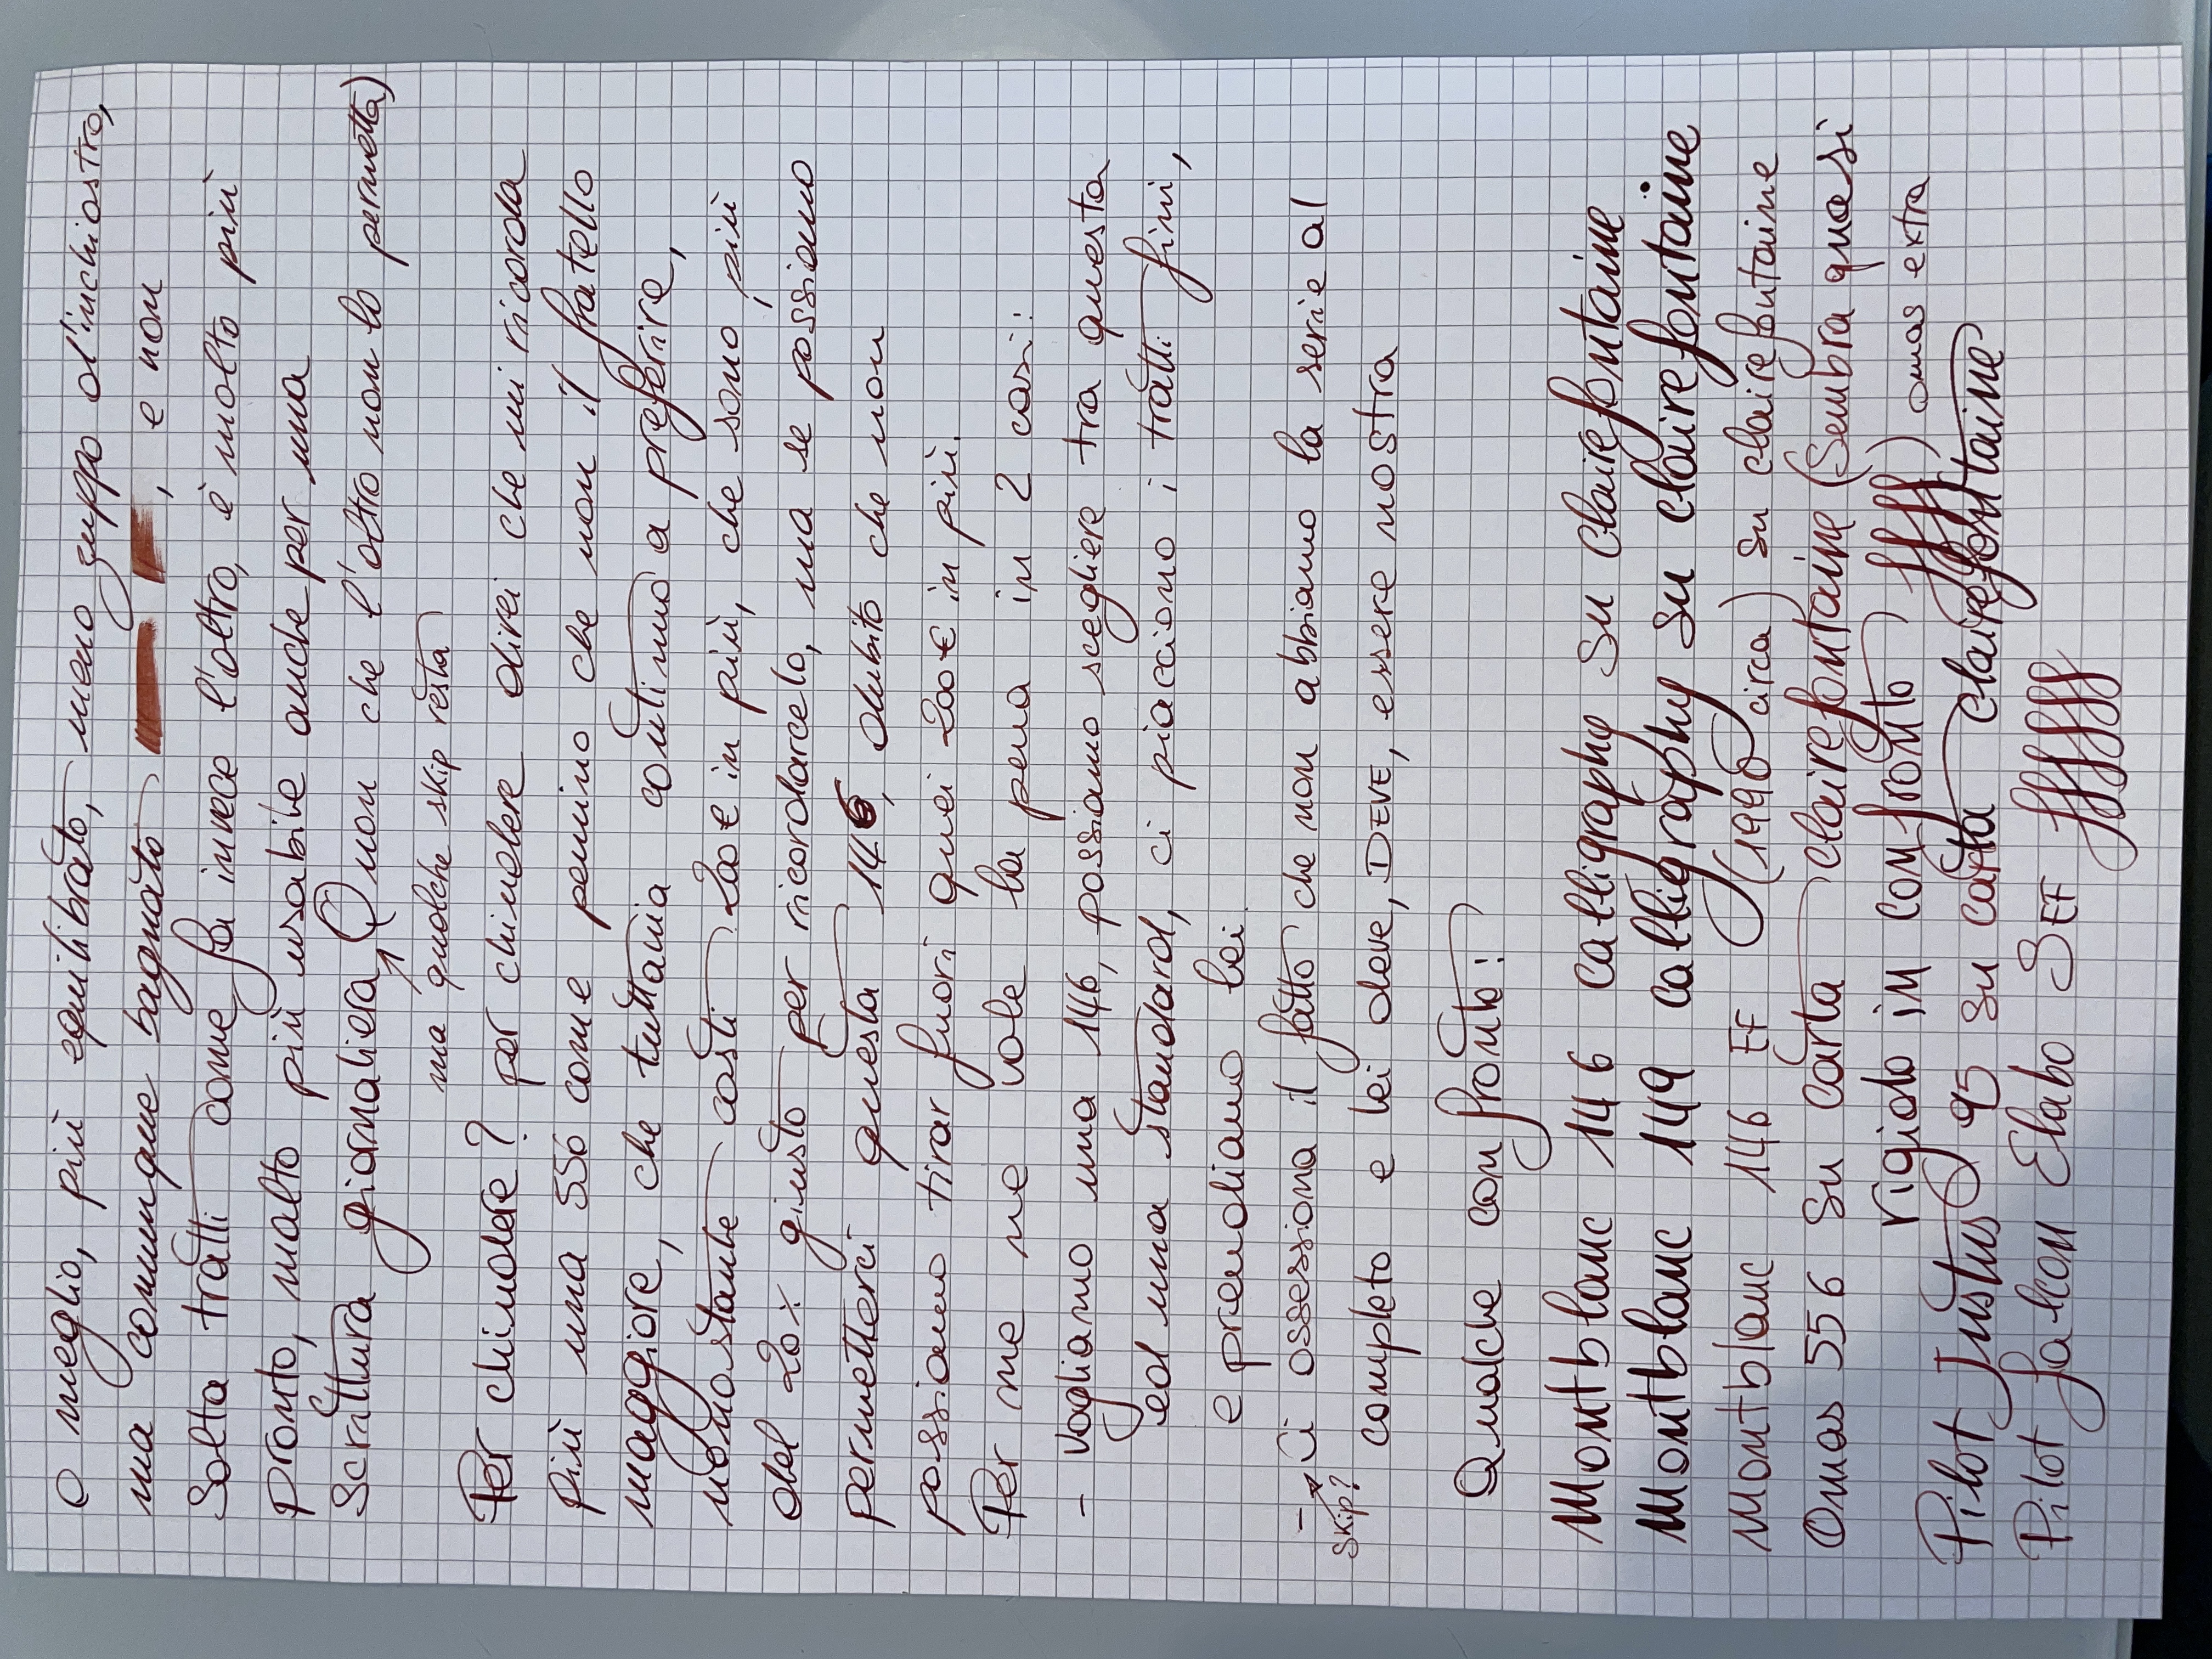 O meglio, più equilibrato, meno zuppo d'inchiostro,
ma comunque bagnato , e non
Salta tratti come fa invece l'altro, è molto più
pronto, molto più usabile anche per una
Scrittura giornaliera, (non che l'altro non lo permetta)
ma qualche skip resta
Per chiudere? per chiudere direi che mi ricorda
più una 556 come pennino che non il fratello
maggiore, che tuttavia continuo a preferire,
nonostante costi 200€ in più, che sono, più
del 20% giusto per ricordarcelo, ma se possiamo
permetterci questa 146, dubito che non
possiamo tirar fuori quei 200€ in più.
Per me ne vale la pena in 2 casi:
- vogliamo una 146, possiamo scegliere tra questa
ed una standard, ci piacciono i tratti fini,
e prendiamo lei
- Ci ossessiona il fatto che non abbiamo la serie al
skip?
completo e lei deve, DEVE, essere nostra
Qualche confronto:
Montblanc 146 calligraphy su clairefontaine
Montblanc 149 calligraphy su clairefontaine
Montblanc 146 EF (1990 circa) su clairefontaine
Omas 556 su carta clairefontaine (Sembra quasi
rigido in confronto) ffffff) omas extra
Pilot Justus 95 su carta clairefontaine
Pilot falcon Elabo SEF ffffffff